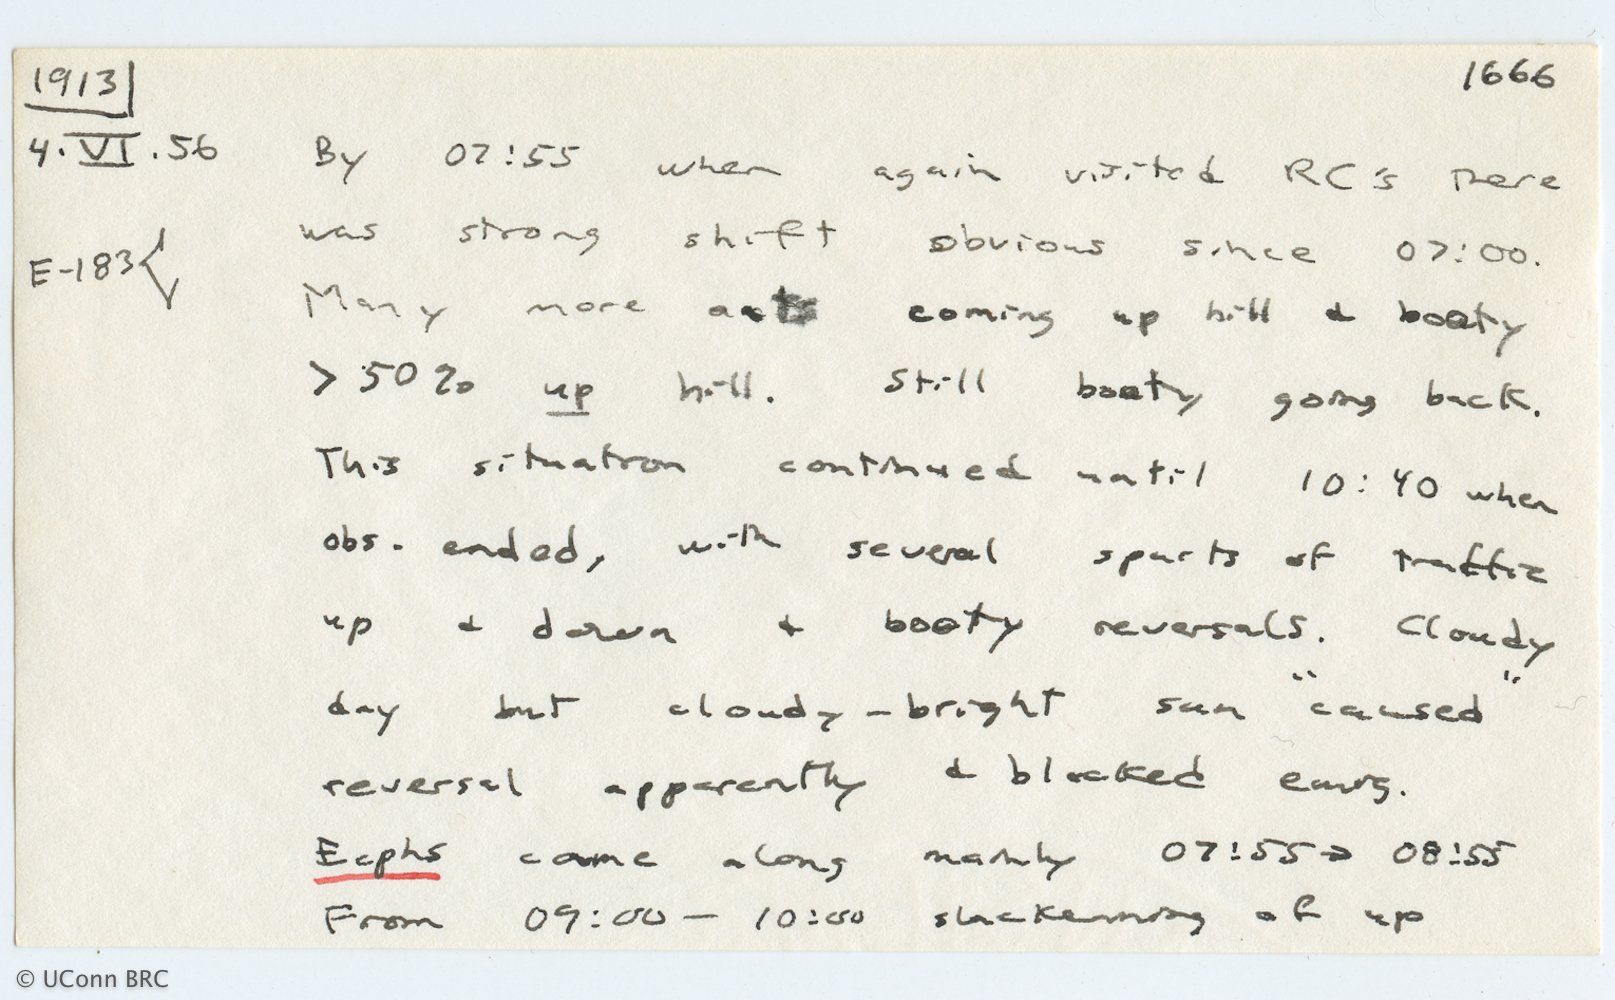 1913
1666
4.VI.56
By 07:55 when again visited RC's there
was strong shift obvious since 07:00.
E-183
Many more ants coming up hill & booty
> 50% up hill. Still booty going back.
This situation continued until 10:40 when
obs. ended, with several spurts of traffic
up & down & booty reversals. Cloudy
day but cloudy-bright sun "caused"
reversal apparently & blocked emig.
Ecphs came along mainly 07:55 → 08:55
From 09:00 – 10:00 slackenning of up
© UConn BRC